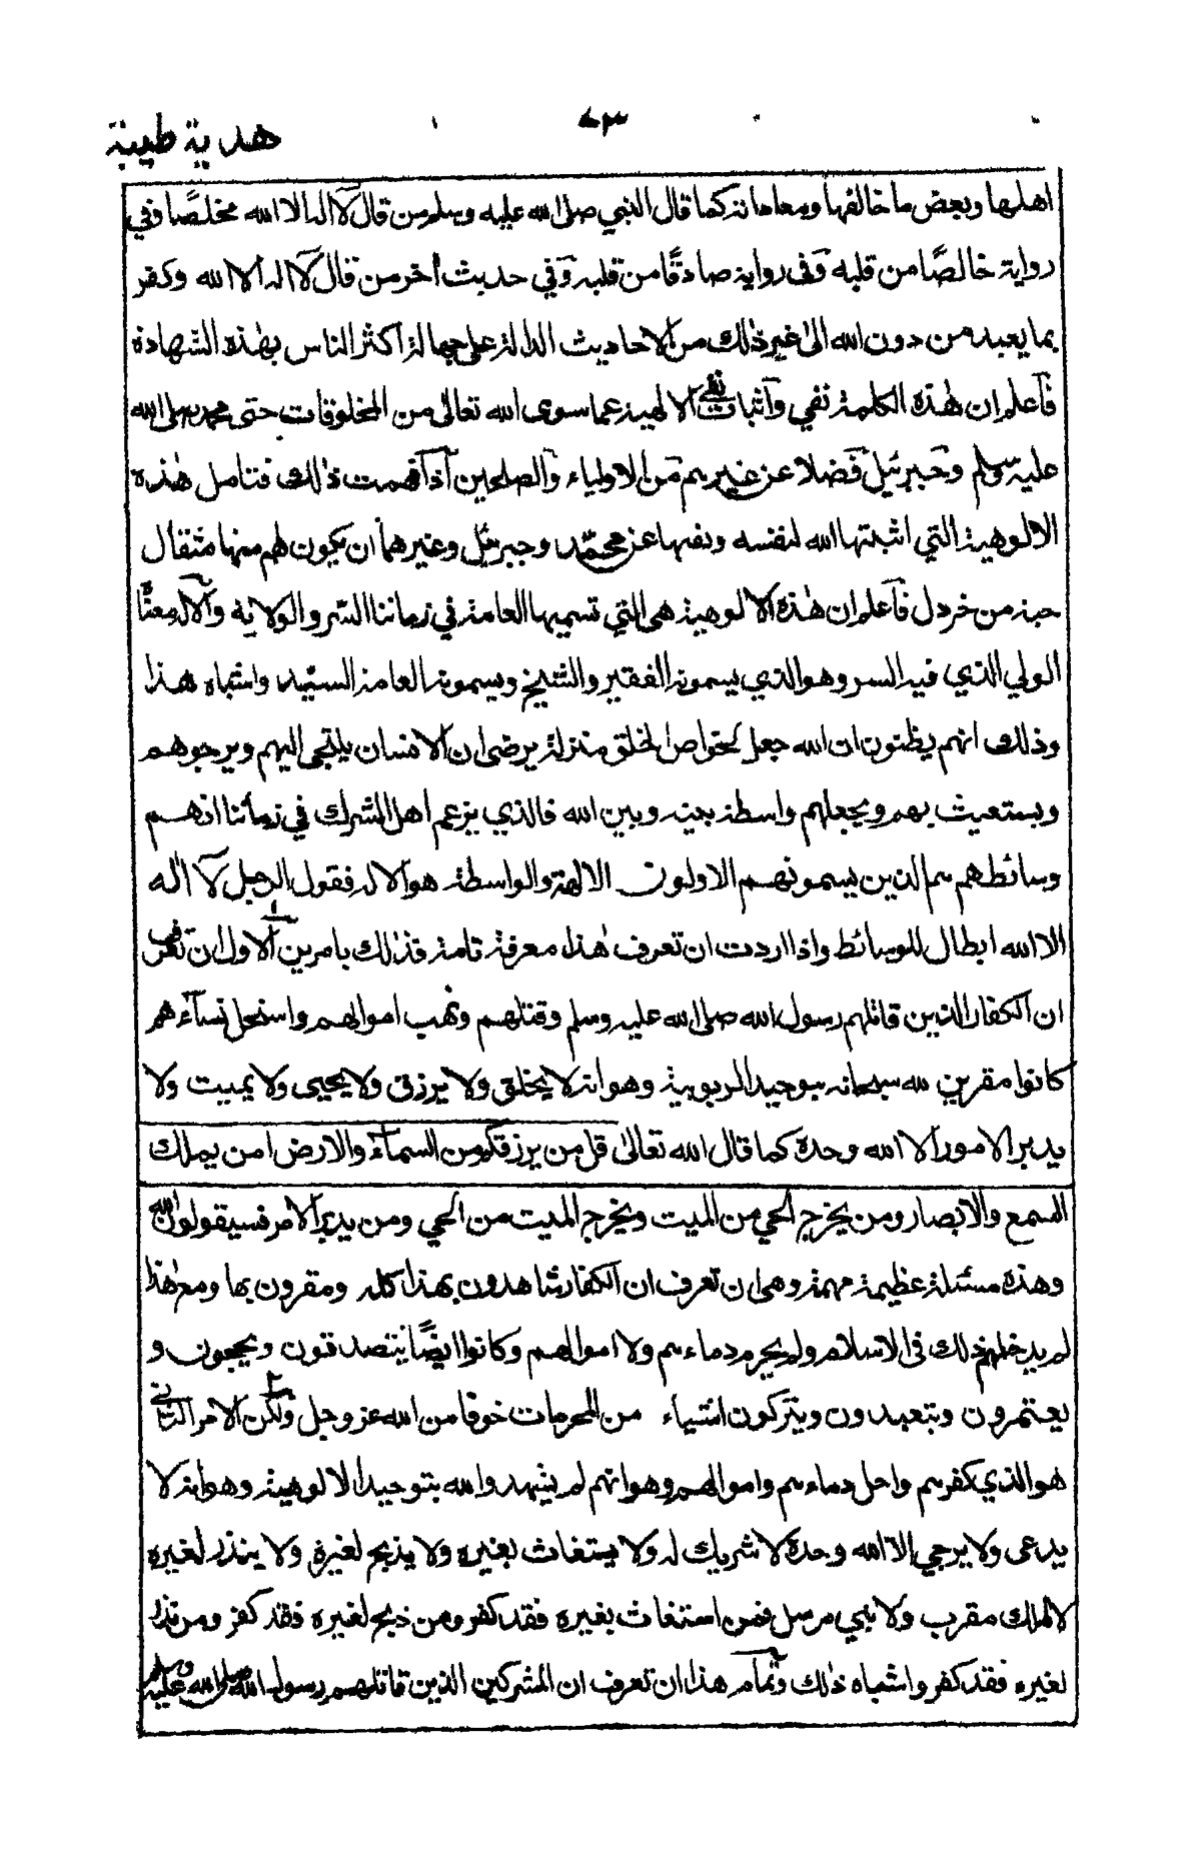 ٧٣
هدية طيبة
اهلها وبعض ما خالفها ومعاداته كما قال النبي صلى الله عليه وسلم من قال لا اله الا الله مخلصًا وفي
رواية خالصًا من قلبه وفى رواية صادقًا من قلبه وفي حديث اخر من قال لا اله الا الله وكفر
بما يعبد من دون الله الى غير ذلك من الاحاديث الدالة على جهالة اكثر الناس بهذه الشهادة
فاعلم ان هذه الكلمة نفي واثبات نفي الالهية عما سوى الله تعالى من المخلوقات حتى محمد صلى الله
عليه وسلم وجبرئيل فضلا عن غيرهم من الاولياء والصلحين اذا فهمت ذلك فتامل هذه
الالوهية التي اثبتها الله لنفسه ونفيها عن محمد وجبرئيل وغيرهما ان يكون لهم منها مثقال
حبة من خردل فاعلم ان هذه الالوهية هى التي تسميها العامة في زماننا السر والولاية والاله معناه
الولي الذي فيه السر وهو الذي يسمونه الفقير والشيخ ويسمونه العامة السيد واشباه هذا
وذلك انهم يظنون ان الله جعل لخواص الخلق منزلة يرضى ان الانسان يلتجى اليهم ويرجوهم
ويستغيث بهم ويجعلهم واسطة بينه وبين الله فالذي يزعم اهل الشرك في زماننا انهم
وسائطهم هم الذين يسمونهم الاولون الالهة والواسطة هو الاله فقول الرجل لا اله
الا الله ابطال للوسائط واذا اردت ان تعرف هذا معرفة تامة فذلك بامرين الاول ان تعرف
ان الكفار الذين قاتلهم رسول الله صلى الله عليه وسلم وقتلهم ونهب اموالهم واستحل نساءهم
كانوا مقرين لله سبحانه بتوحيد الربوبية وهو انه لا يخلق ولا يرزق ولا يحيى ولا يميت ولا
يدبر الامور الا الله وحده كما قال الله تعالى قل من يرزقكم من السماء والارض امن يملك
السمع والابصار ومن يخرج الحي من الميت ويخرج الميت من الحي ومن يدبر الامر فسيقولون الله
وهذه مسئلة عظيمة مهمة وهى ان تعرف ان الكفار شاهدون بهذا كله ومقرون بها ومع هذا
لم يدخلهم ذلك فى الاسلام ولم يحرم دماءهم ولا اموالهم وكانوا ايضًا يتصدقون ويحجون و
يعتمرون ويتعبدون ويتركون اشياء من المحرمات خوفا من الله عز وجل ولكن الامر الثاني
هو الذي كفرهم واحل دماءهم واموالهم وهو انهم لم يشهدوا لله بتوحيد الالوهية وهو انه لا
يدعى ولا يرجي الا الله وحده لا شريك له ولا يستغاث بغيره ولا يذبح لغيره ولا ينذر لغيره
لا لملك مقرب ولا نبي مرسل فمن استغاث بغيره فقد كفر ومن ذبح لغيره فقد كفر ومن نذر
لغيره فقد كفر واشباه ذلك وتمام هذا ان تعرف ان المشركين الذين قاتلهم رسول الله صلى الله عليه وسلم